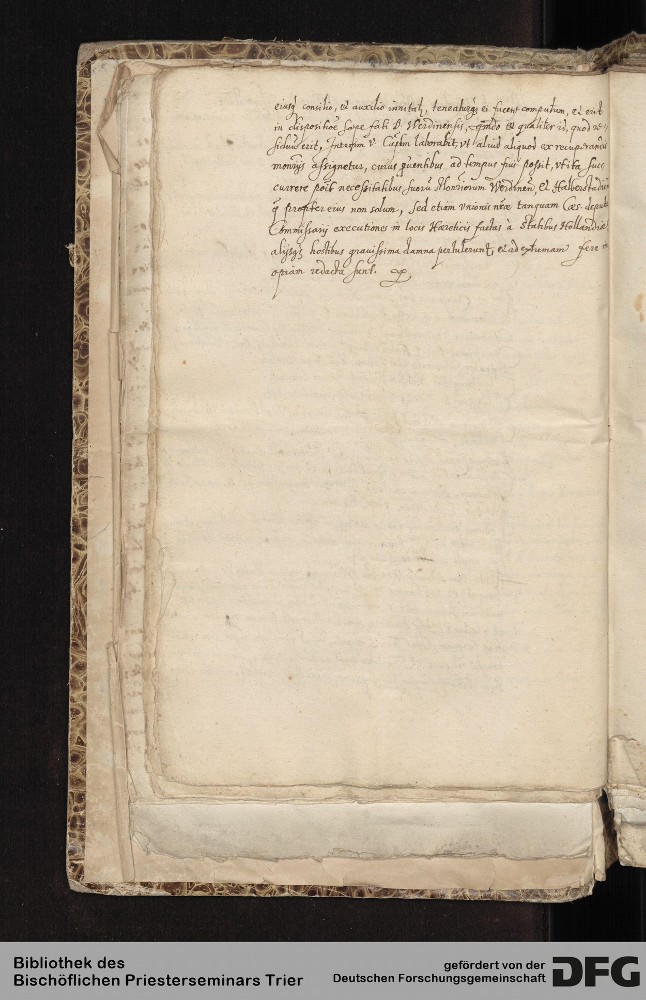 eiusq consilio, et auxilio innitat, teneaturq ei facere computum, et erit
in dispositioe saepe fati D. Werdinensis, qndo et qualiter id, quod
siduu erit, Interim V. Caplm laborabit, vt aliud aliquod ex recuperamdis
monrijs assignetur, cuius prouentibus ad tempus frui possit, vt ita suc
currere possit necessitatibus suoru Monriorum Werdinen, et Halberstadien
q propter eius non solum, sed etiam vnionis nrae tanquam Caes. deputati
Commissarij executiones in locis Haereticis factas à statibus Hollandiae
alijsq hostibus gravissima damna pertulerunt, et ad extremam fere
opiam redacta sunt.
Bibliothek des
Bischöflichen Priesterseminars Trier
gefördert von der
Deutschen Forschungsgemeinschaft
DFG